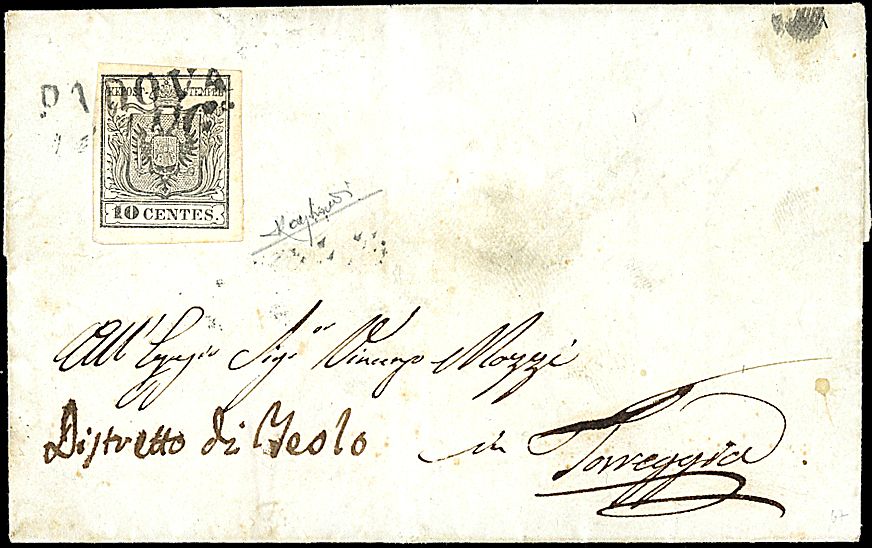 PADOVA
KKPOST-STEMPEL
10 CENTES.
All' Egregio Sigr Vincenzo Mozzi
Distretto di Teolo in Torreggia